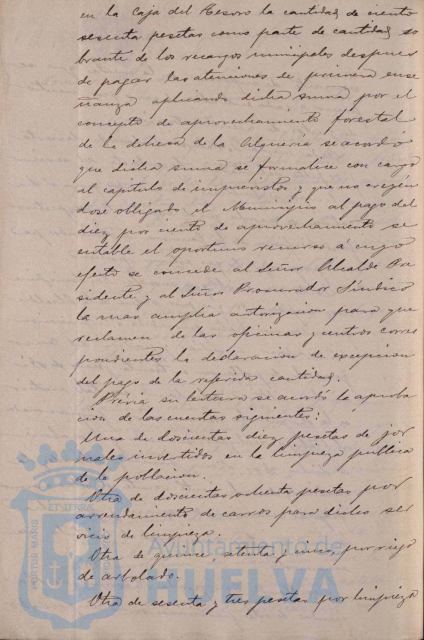 en la Caja del Tesoro la cantidad de ciento
sesenta pesetas como parte de cantidad so
brante de los recargos municipales despues
de pagar las atenciones de primera ense
ñanza aplicando dicha suma por el
concepto de aprovechamiento forestal
de la dehesa de la Alqueria se acordó
que dicha suma se formalice con cargo
al capitulo de imprevistos y que no creyén
dose obligado el Municipio al pago del
diez por ciento de aprovechamiento se
entable el oportuno recurso á cuyo
efecto se concede al Señor Alcalde Pre
sidente y al Señor Procurador Síndico
la mas amplia autorizacion para que
reclamen de las oficinas y centros corres
pondientes la declaracion de excepcion
del pago de la referida cantidad.
Prévia su lectura se acordó la aproba
cion de las cuentas siguientes:
Una de doscientas diez pesetas de jor
nales invertidos en la limpieza publica
de la poblacion.
Otra de doscientas ochenta pesetas por
arrendamiento de carros para dichos ser
vicios de limpieza.
Otra de quince, setenta y cinco, por riego
de arbolado.
Otra de sesenta y tres pesetas por limpieza
PORTUS MARIS
ET TERRAE
Ayuntamiento de
HUELVA